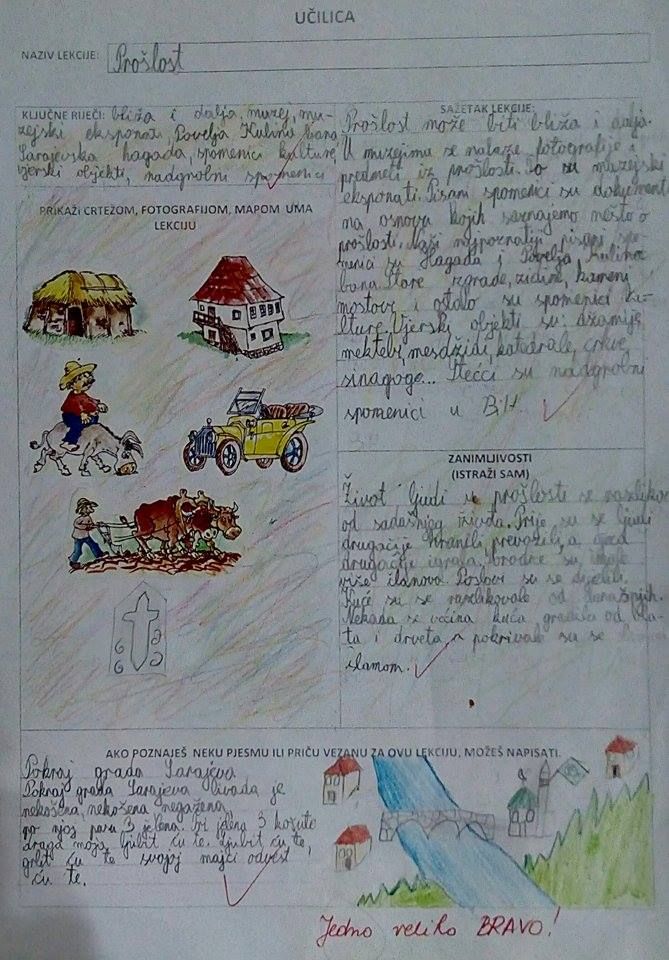 UČILICA
NAZIV LEKCIJE: Prošlost
KLJUČNE RIJEČI: bliža i dalja, muzej, mu-
zejski eksponati, Povelja Kulina bana
Sarajevska hagada, spomenici kulture,
vjerski objekti, nadgrobni spomenici
PRIKAŽI CRTEŽOM, FOTOGRAFIJOM, MAPOM UMA
LEKCIJU
SAŽETAK LEKCIJE:
Prošlost može biti bliža i dalja.
U muzejima se nalaze fotografije i
predmeti iz prošlosti. To su muzejski
eksponati. Pisani spomenici su dokumenti
na osnovu kojih saznajemo nešto o
prošlosti. Naši najpoznatiji pisani spo-
menici su Hagada i Povelja Kulina
bana. Stare zgrade, zidine, kameni
mostovi i ostalo su spomenici ku-
lture. Vjerski objekti su: džamije,
mektebi, mesdžidi, katedrale, crkve,
sinagoge... Stećci su nadgrobni
spomenici u BiH.
ZANIMLJIVOSTI
(ISTRAŽI SAM)
Život ljudi u prošlosti se razlikuje
od sadašnjeg života. Prije su se ljudi
drugačije hranili, prevozili, a djeca
drugačije igrala, brodne su imale
više članova. Poslovi su se dijelili.
Kuće su se razlikovale od današnjih.
Nekada se većina kuća gradila od bla-
ta i drveta a pokrivale su se
slamom.
AKO POZNAJEŠ NEKU PJESMU ILI PRIČU VEZANU ZA OVU LEKCIJU, MOŽEŠ NAPISATI.
Pokraj grada Sarajeva
Pokraj grada Sarajeva livada je
nekošena, nekošena negažena,
po njoj pasu 3 jelena. Tri jelena 3 košute
draga moja ljubit ću te. Ljubit ću te,
grlit ću te svojoj majci odvest
ću te.
Jedno veliko BRAVO!